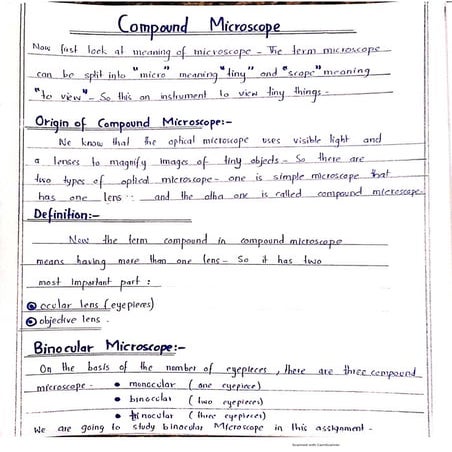 Compound Microscope
Now first look at meaning of microscope - The term microscope
can be split into "micro" meaning "tiny" and "scope" meaning
"to view" - So this an instrument to view tiny things -
Origin of Compound Microscope:-
We know that the optical microscope uses visible light and
a lenses to magnify images of tiny objects - So there are
two types of optical microscope - one is simple microscope that
has one lens and the other one is called compound microscope
Definition:-
Now the term compound in compound microscope
means having more than one lens - So it has two
most important part :
ocular lens (eyepieces)
objective lens .
Binocular Microscope:-
On the basis of the number of eyepieces , there are three compound
microscope - • monocular ( one eyepiece )
• binocular ( two eyepieces )
• trinocular ( three eyepieces )
We are going to study binocular Microscope in this assignment -
Scanned with CamScanner